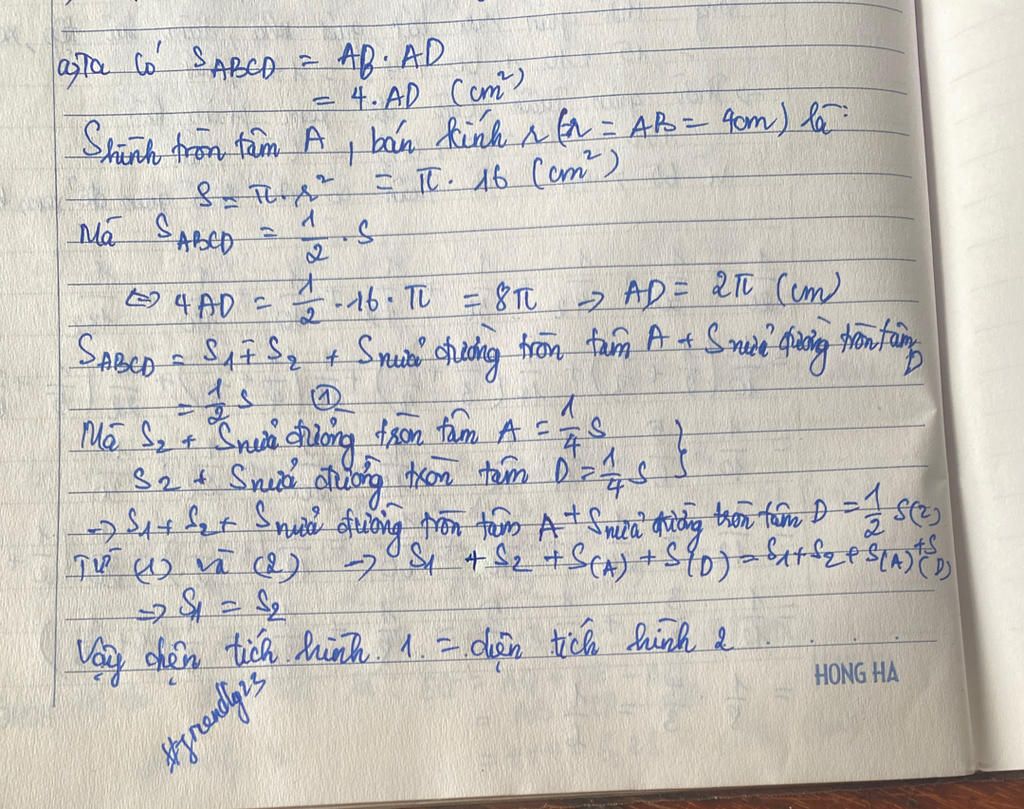 a, Ta có S ABCD = AB . AD
= 4 . AD (cm²)
S hình tròn tâm A, bán kính r (r = AB = 4cm) là:
S = π . r² = π . 16 (cm²)
Mà S ABCD = 1/2 . S
⇔ 4AD = 1/2 . 16 . π = 8π → AD = 2π (cm)
S ABCD = S1 + S2 + S nửa đường tròn tâm A + S nửa đường tròn tâm D
= 1/2 S ①
Mà S2 + S nửa đường tròn tâm A = 1/4 S
S2 + S nửa đường tròn tâm D = 1/4 S }
→ S1 + S2 + S nửa đường tròn tâm A + S nửa đường tròn tâm D = 1/2 S (2)
Từ (1) và (2) → S1 + S2 + S(A) + S(D) = S1 + S2 + S(A) + S(D)
⇒ S1 = S2
Vậy diện tích hình 1 = diện tích hình 2
HONG HA